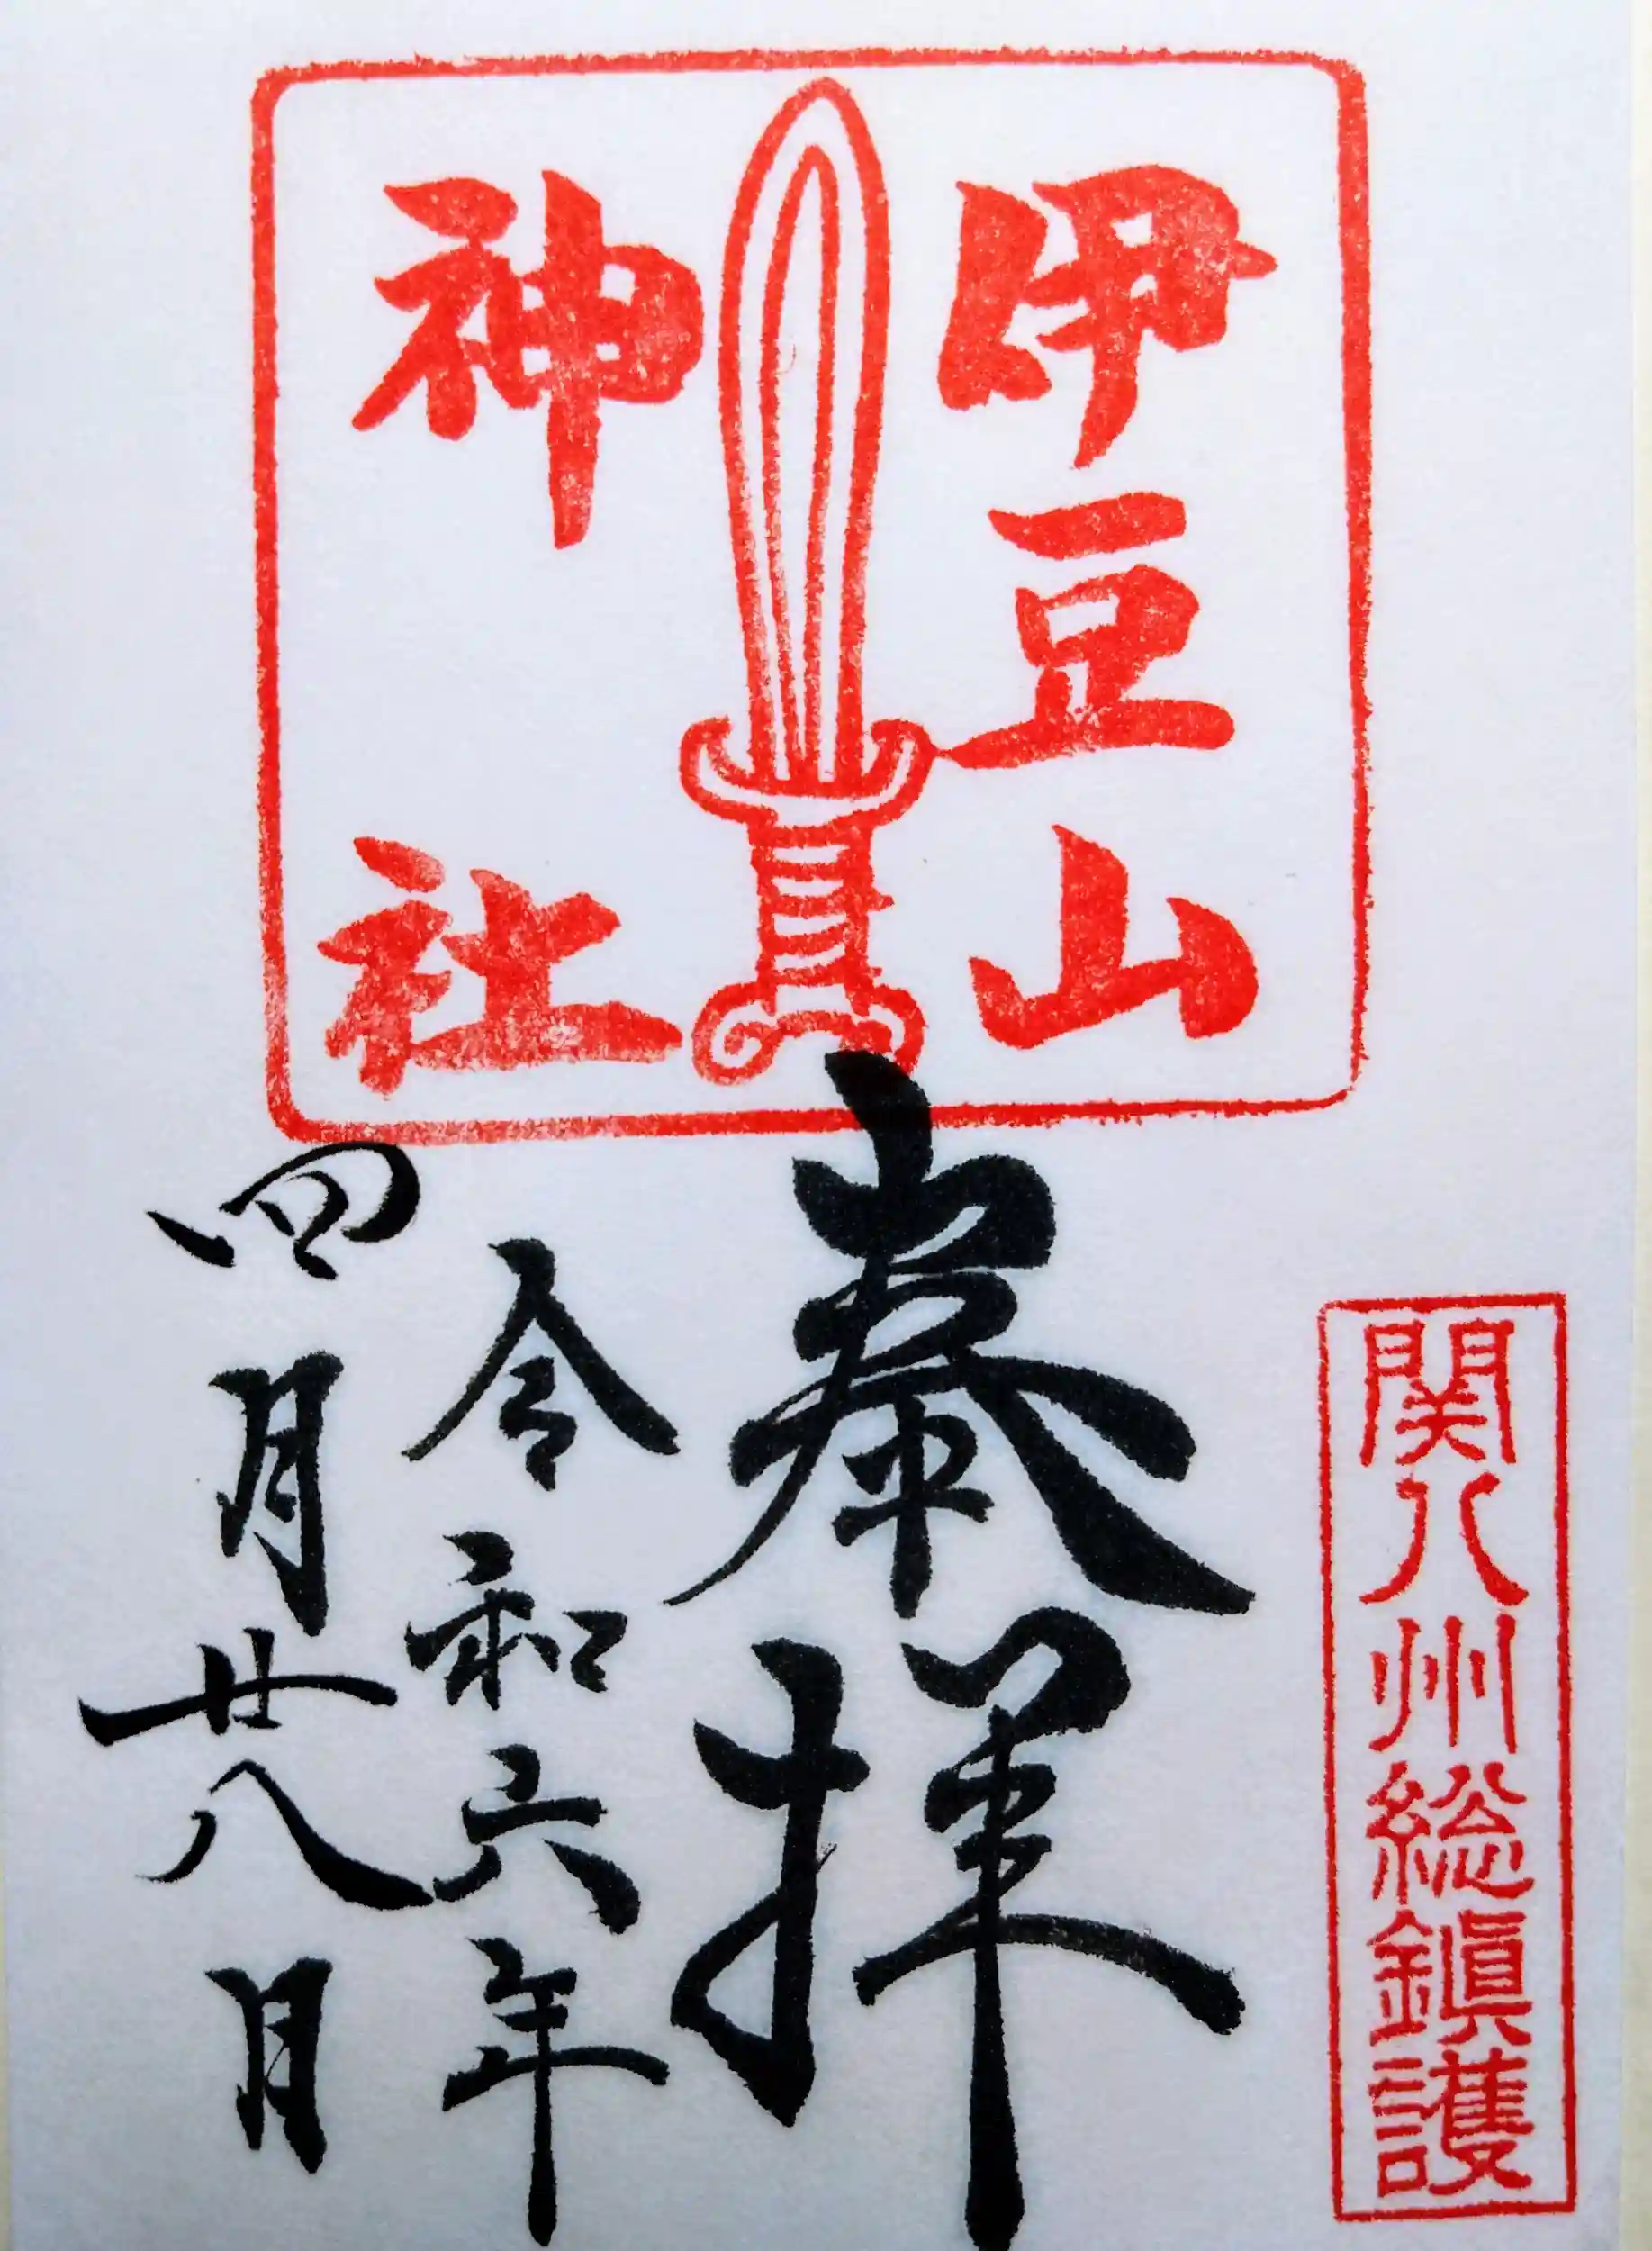 関八州総鎮護
伊豆山
神社
奉拝
令和六年
四月廿八日